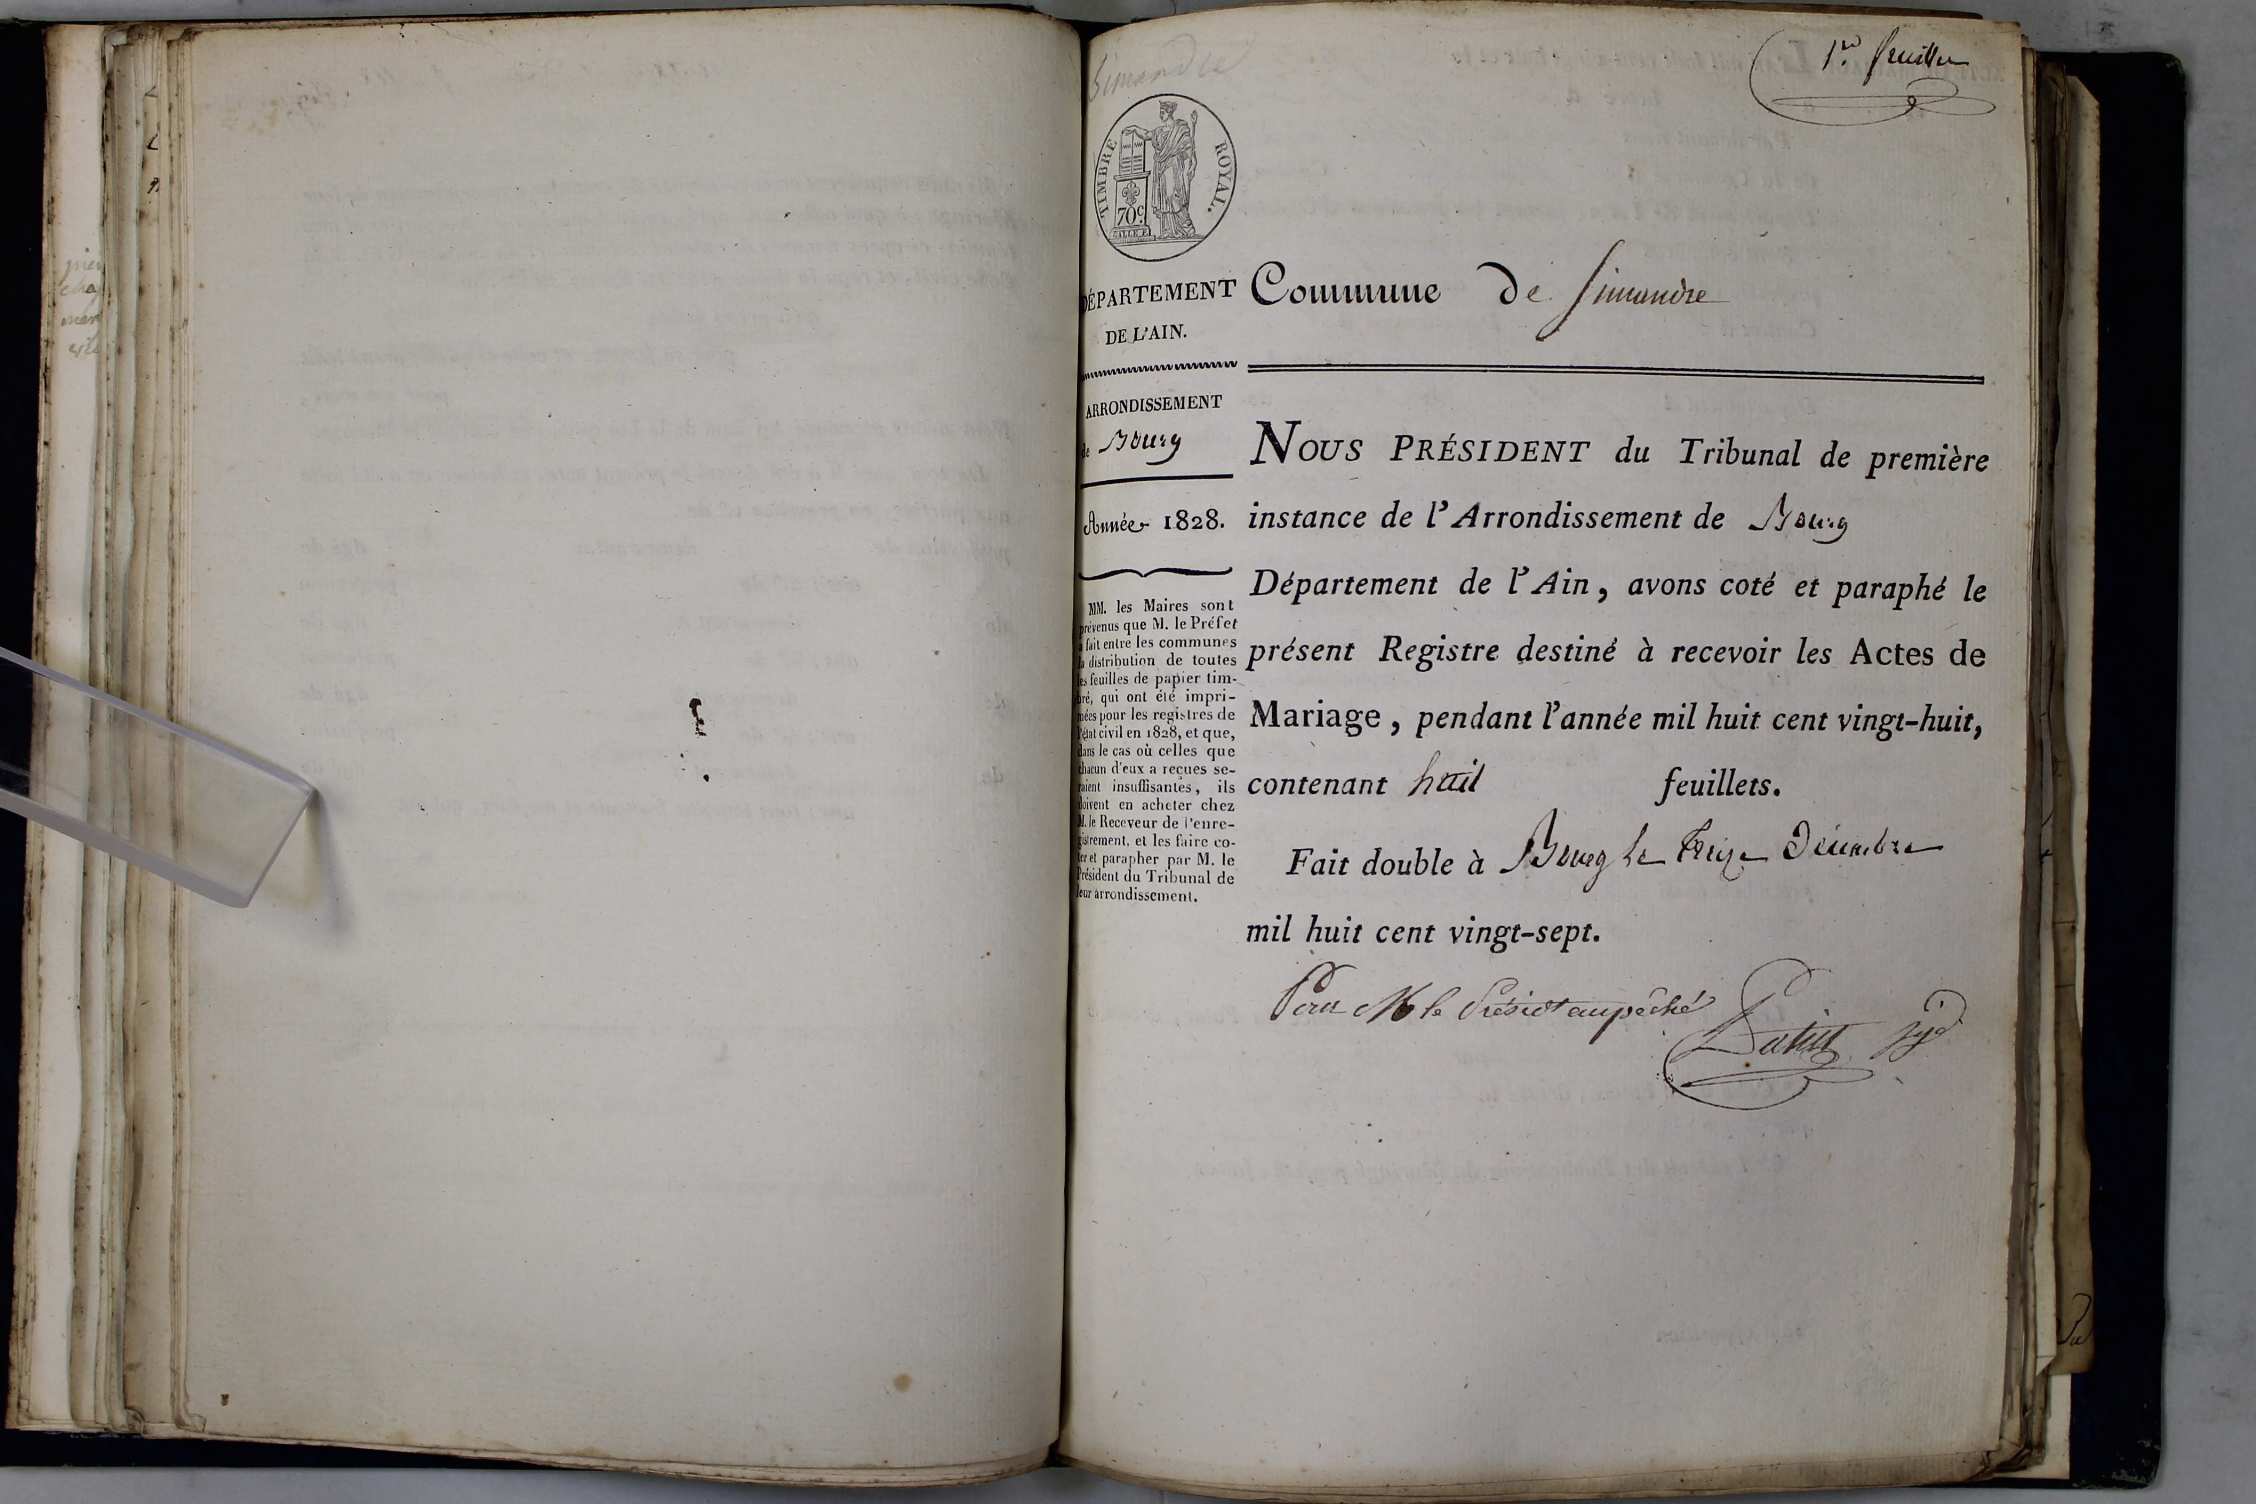 1er feuillet
Simandre
TIMBRE ROYAL.
70c.
DÉPARTEMENT
DE L'AIN.
ARRONDISSEMENT
de Bourg
Année 1828.
MM. les Maires sont
prévenus que M. le Préfet
a fait entre les communes
la distribution de toutes
les feuilles de papier tim-
bré, qui ont été impri-
mées pour les registres de
l'état civil en 1828, et que,
dans le cas où celles que
chacun d'eux a reçues se-
raient insuffisantes, ils
doivent en acheter chez
M. le Receveur de l'enre-
gistrement, et les faire co-
ter et parapher par M. le
Président du Tribunal de
leur arrondissement.
Commune de Simandre
NOUS PRÉSIDENT du Tribunal de première
instance de l'Arrondissement de Bourg
Département de l'Ain, avons coté et paraphé le
présent Registre destiné à recevoir les Actes de
Mariage, pendant l'année mil huit cent vingt-huit,
contenant huit feuillets.
Fait double à Bourg le treize Décembre
mil huit cent vingt-sept.
Pour M le Présidt empêché